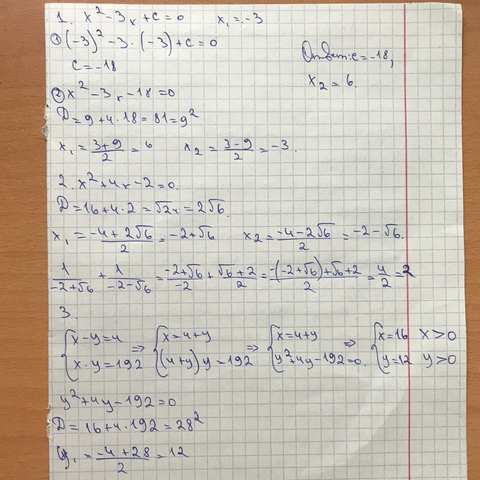 1. x² - 3x + c = 0     x₁ = -3
① (-3)² - 3·(-3) + c = 0
c = -18
Ответ: c = -18,
x₂ = 6.
② x² - 3x - 18 = 0
D = 9 + 4·18 = 81 = 9²
x₁ = (3+9)/2 = 6     x₂ = (3-9)/2 = -3.
2. x² + 4x - 2 = 0.
D = 16 + 4·2 = √24 = 2√6.
x₁ = (-4+2√6)/2 = -2+√6     x₂ = (-4-2√6)/2 = -2-√6.
1/(-2+√6) + 1/(-2-√6) = (-2+√6)/(-2) + (√6+2)/2 = (-(-2+√6)+√6+2)/2 = 4/2 = 2
3.
{x-y=4     ⇒ {x=4+y     ⇒ {x=4+y     ⇒ {x=16   x>0
{x·y=192     {(4+y)y=192     {y²+4y-192=0.     {y=12   y>0
y² + 4y - 192 = 0
D = 16 + 4·192 = 28²
y₁ = (-4+28)/2 = 12